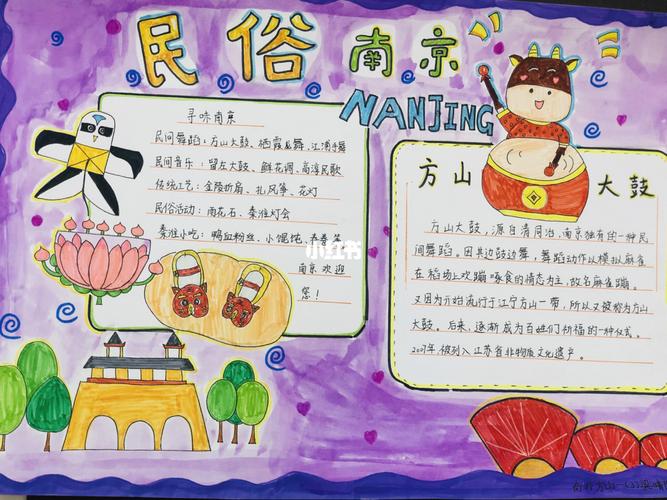 民俗 南京
NANJING
寻味南京
民间舞蹈：方山大鼓、栖霞龙舞、江浦手狮
民间音乐：留左大鼓、鲜花调、高淳民歌
传统工艺：金陵折扇、扎风筝、花灯
民俗活动：雨花石、秦淮灯会
秦淮小吃：鸭血粉丝、小馄饨、
南京欢迎
您！
小红书
方山大鼓
方山大鼓，源自清同治，南京独有的一种民
间舞蹈。因其边鼓边舞，舞蹈动作以模拟麻雀
在稻场上欢蹦啄食的情态为主，故名麻雀蹦。
又因为开始流行于江宁方山一带，所以又被称为方山
大鼓。后来，逐渐成为百姓们祈福的一种仪式。
2007年被列入江苏省非物质文化遗产。